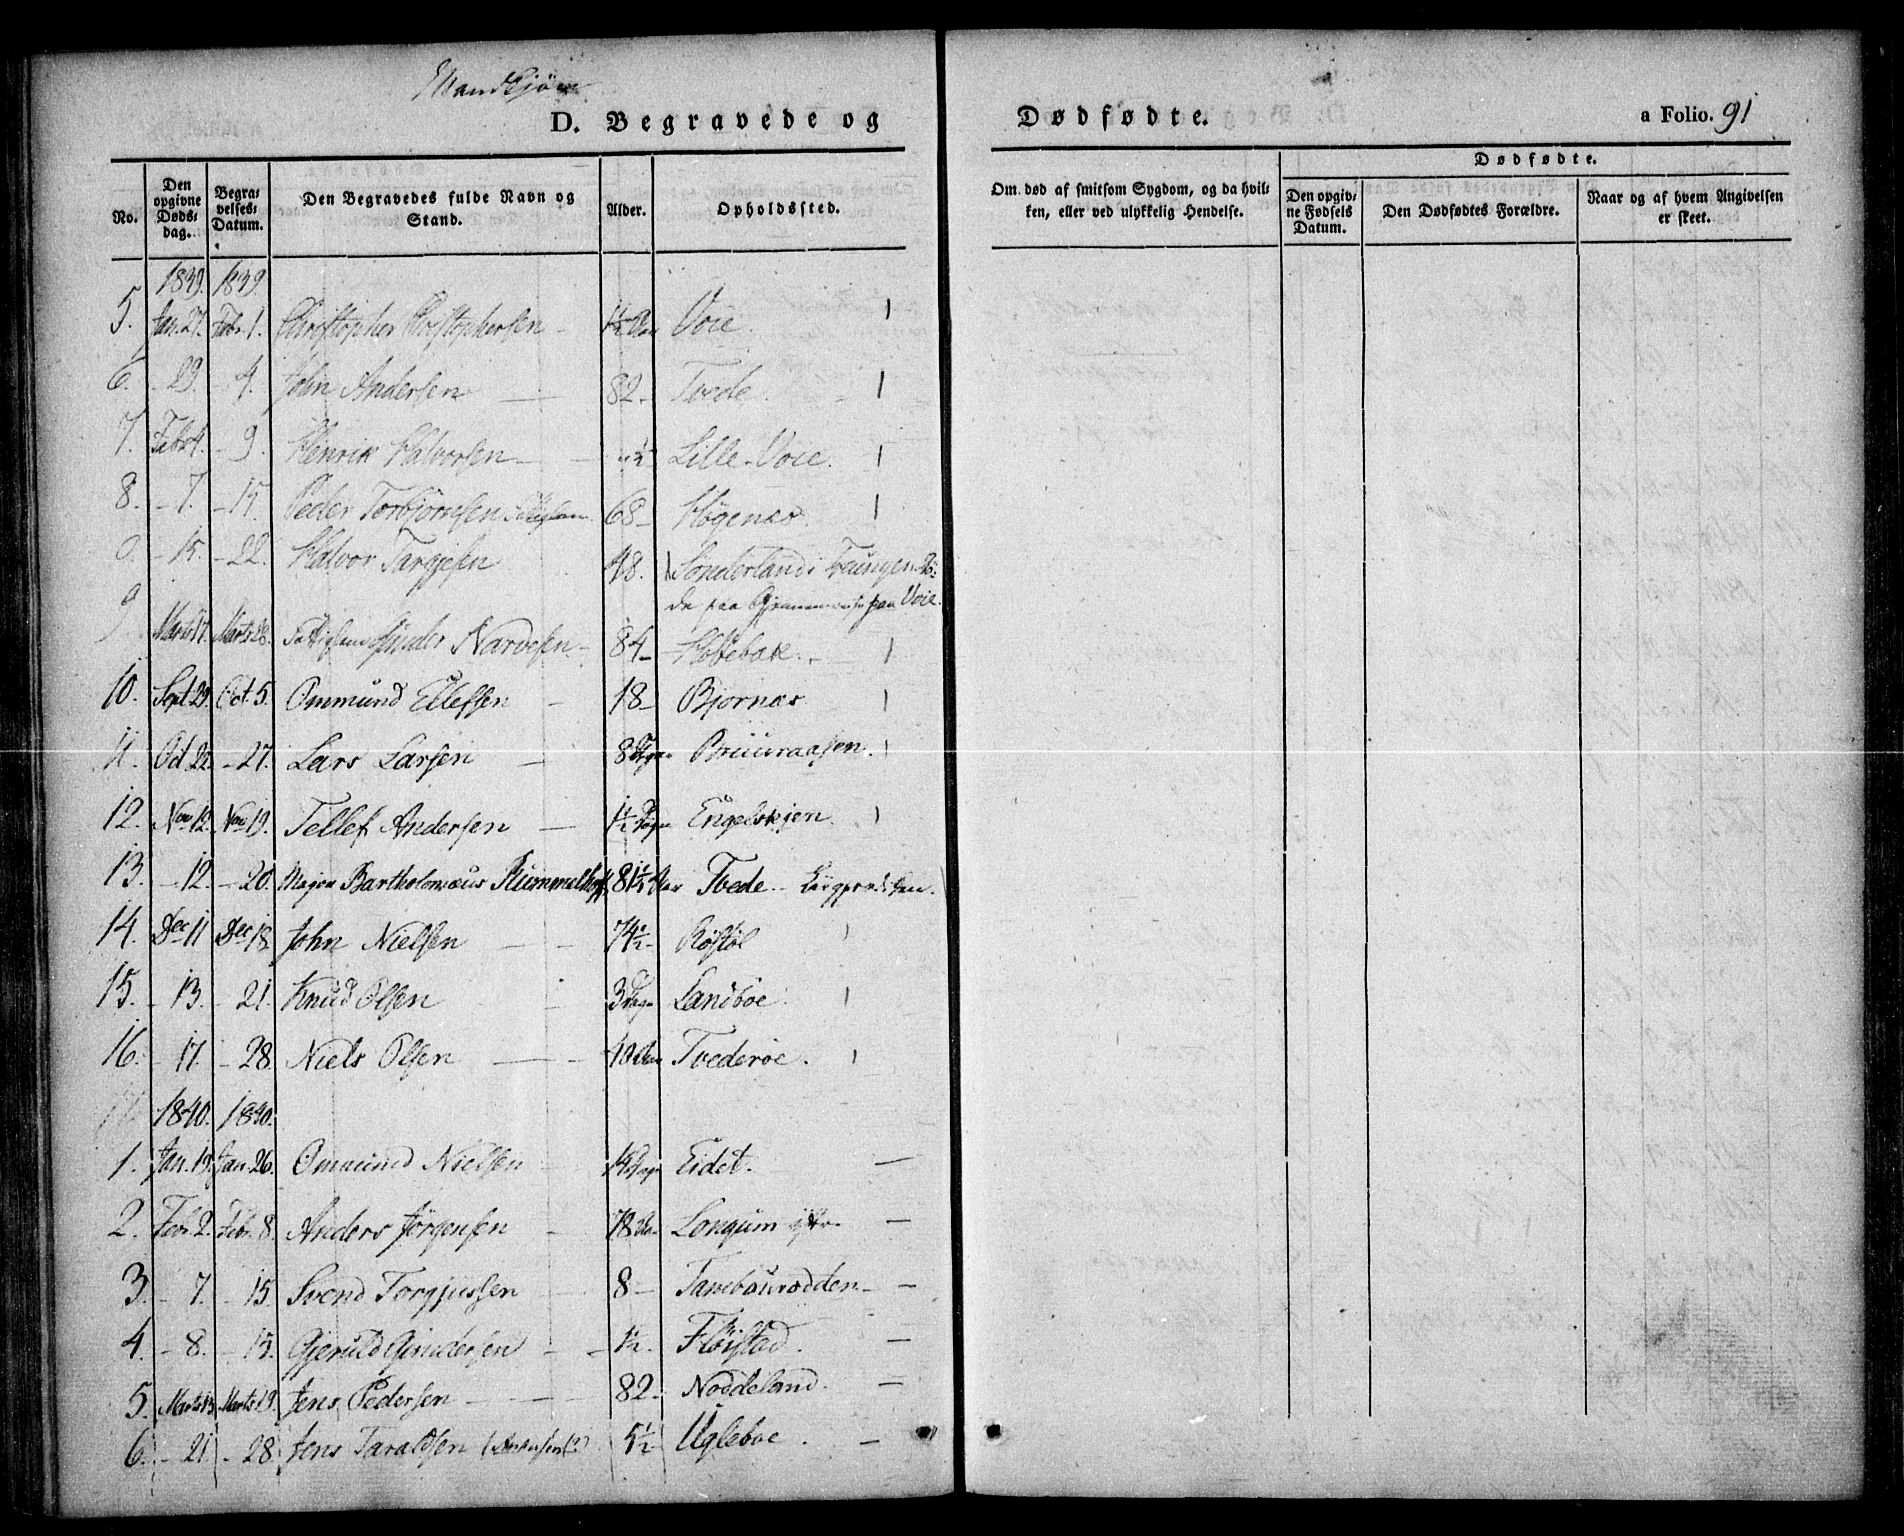 Mandkjøn
D. Begravede og Dødfødte. a Folio. 91
No. Den opgivne Døds-dag. Begravelses-Datum. Den Begravedes fulde Navn og Stand. Alder. Opholdssted. Om død af smitsom Sygdom, og da hvilken, eller ved ulykkelig Hendelse. Dødfødte. Den opgivne Fødsels Datum. Den Dødfødtes Forældre. Naar og af hvem Angivelsen er skeet.
1839. 1839.
5. Jan. 27. Febr. 1. Christopher Christophersen 1½ Voie.
6. - 29. - 4. John Andersen 82 Tvede.
7. Febr 4. - 9. Henrik Halvorsen ½ Lille-Voie.
8. - 7. - 15. Peder Torbjørnsen 68 Høgenæs.
- 15. - 22. Halvor Targjesen 48. Sønderland i
paa Voie.
9 Marts 17. Marts 28. Gunder Narvesen 84
10. Sept. 29. Oct. 5. Ommund Ellefsen 18 Bjornæs
11. Oct 22. - 27. Lars Larsen 8 Dage
12. Nov 12. Nov 19. Tellef Andersen 1½ Engelskjen
13. - 12. - 20. Major Bartholomæus Rummelhoff 81½ Aar Tvede
14. Dec 11 Dec 18. John Nielsen 74½ Røstøl
15. - 13. - 21. Knud Olsen 3 Dage Landboe
16. - 17. - 28. Niels Olsen 10 Tvederøe.
1840. 1840.
1. Jan. 19. Jan. 26. Ommund Nielsen 14 Dage Eidet.
2. Febr. 2. Febr. 8. Anders Jørgensen 78 Longum
3. - 7. - 15. Svend Torgjussen 8
4. - 8. - 15. Gjeruld Gundersen 1½ Fløistad.
5. Marts 13 Marts 19. Jens Pedersen 82 Nøddeland.
6. - 21. - 28. Jens Taraldsen 5½ Ugleboe.